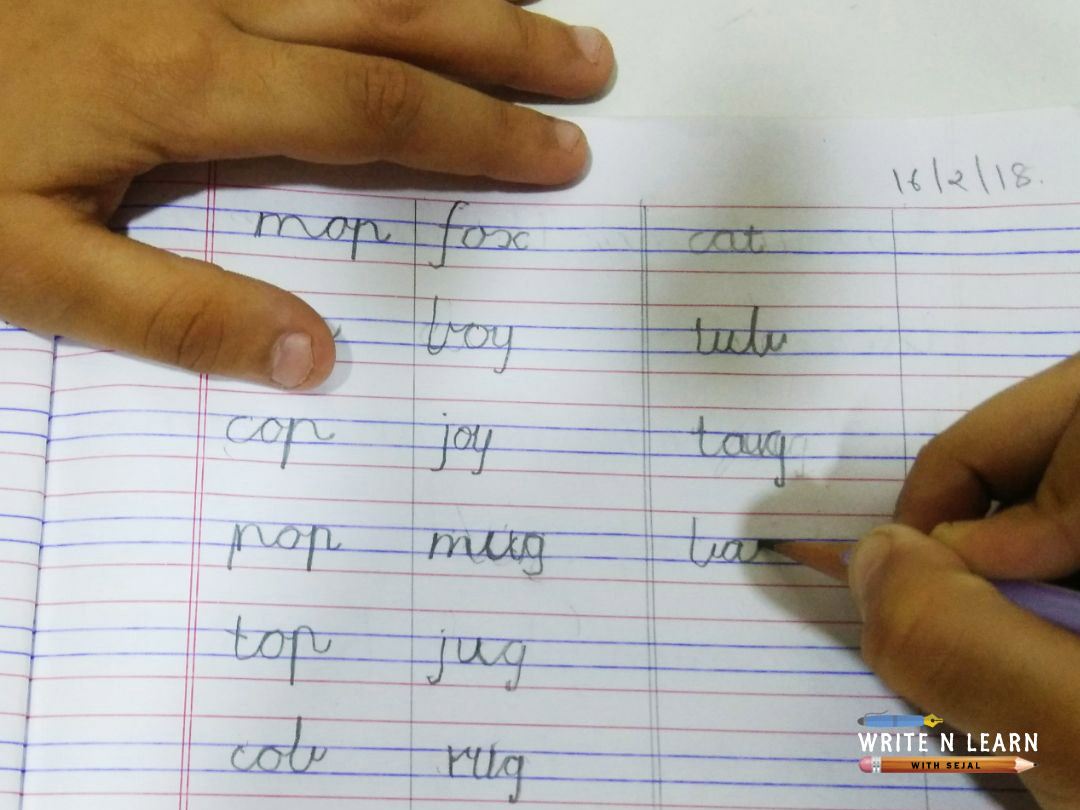 16/2/18.
mop fox cat
boy rub
cop joy taug
pop mug ba
top jug
cob rug
WRITE N LEARN
WITH SEJAL